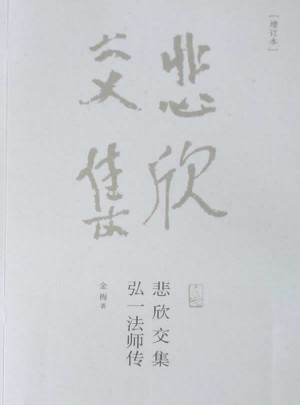 ［增订本］
悲欣
交集
悲欣交集
弘一法师传
金梅 著